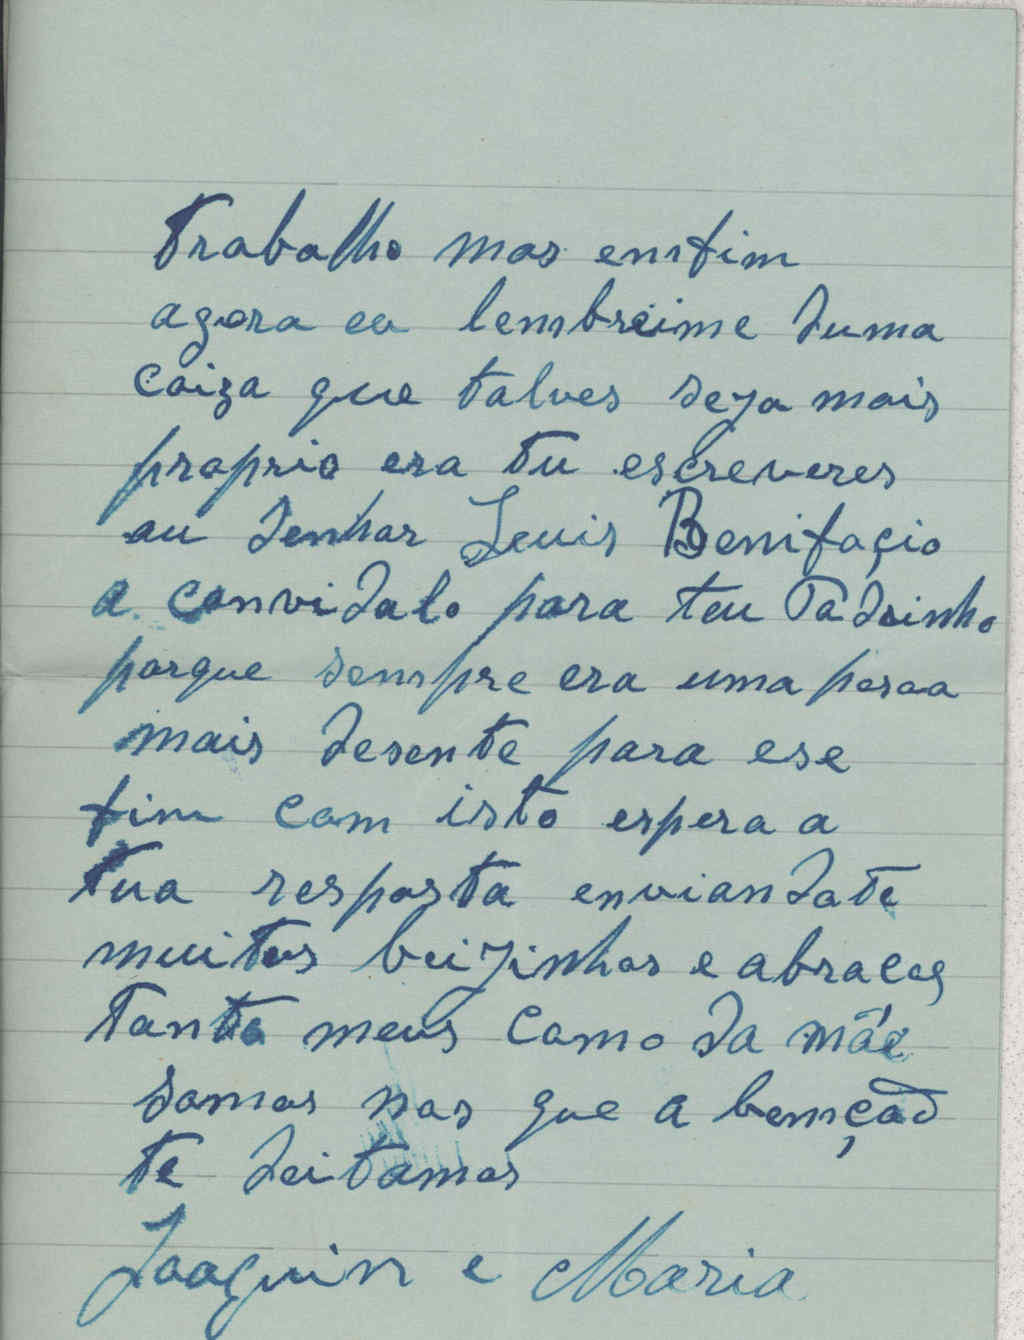 Trabalho mas emfim
agora eu lembreime duma
coiza que talves seja mais
proprio era tu escreveres
au Senhor Leuis Benifaçio
a convidalo para teu Padrinho
porque sempre era uma pesoa
mais desente para ese
fim com isto espera a
tua resposta enviandote
muitos beijinhos e abraços
tanto meus como da mãe
somos nos que a bemção
te deitamos
Joaquin e Maria